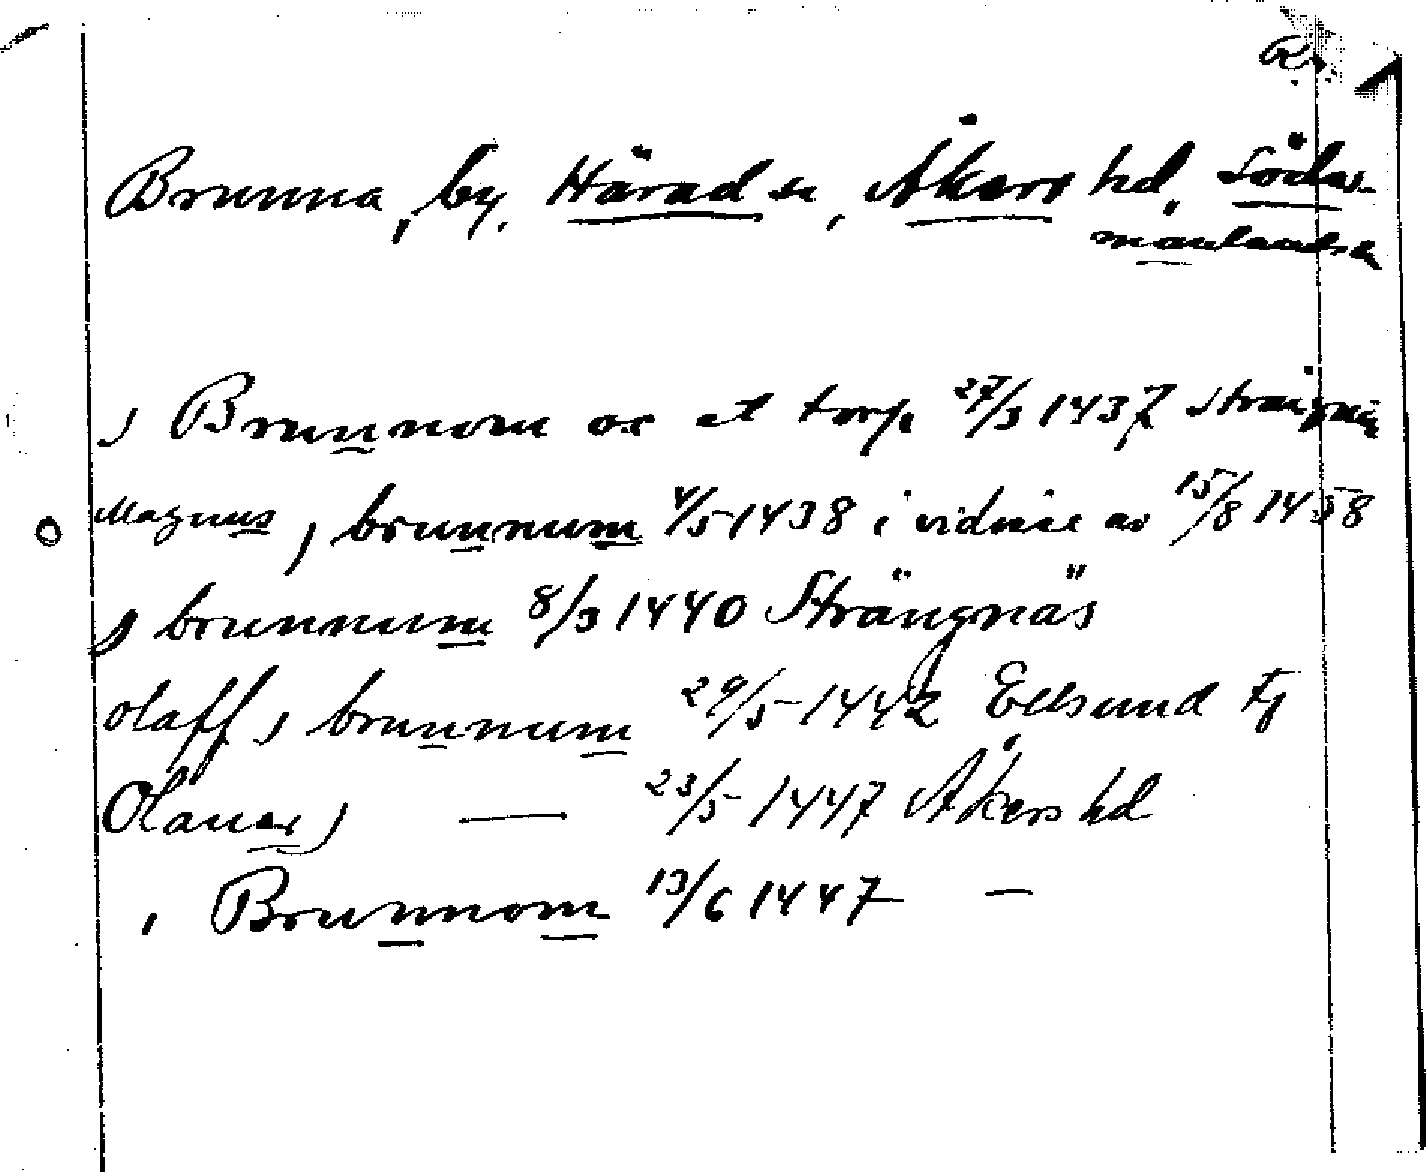 Brunna, by, Härads sn, Åkers hd, Söder-
manlands
j Brunnom ox et torp 27/3 1437 Strängnäs
Magnus j brunnum 4/5 1438 i vidisse av 15/8 1458
j brunnum 8/3 1440 Strängnäs
olaff j brunnum 29/5 1442 Edsund
Olauus j — 23/5 1447 Åkers hd
i Brunnom 13/6 1447 —